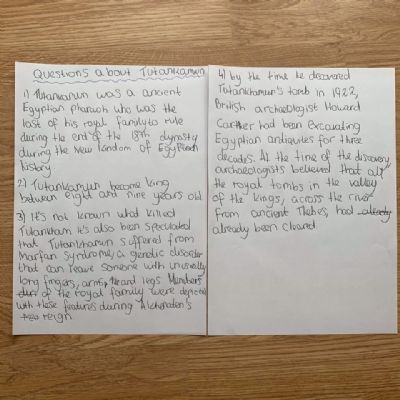 Questions about Tutankamun
1) Tutankamun was a ancient
Egyptian pharaoh who was the
last of his royal family to rule
during the end of the 18th dynasty
during the New Kindom of Egyptian
history
2) Tutankamun become king
between eight and nine years old.
3) It's not known what killed
Tutankham it's also been speculated
that Tutankhamun suffered from
Marfan syndrome, a genetic disorder
that can leave someone with unusually
long fingers, arms, and legs Members
of the royal family were depicted
with these features during Akhenaten's
reign
4) by the time he discovered
Tutankhamun's tomb in 1922,
British archaeologist Howard
Carther had been excavating
Egyptian antiquites for three
decades. At the time of the discovery,
archaeologists believed that all
the royal tombs in the valley
of the kings, across the river
from ancient Thebes, had already
already been cleared